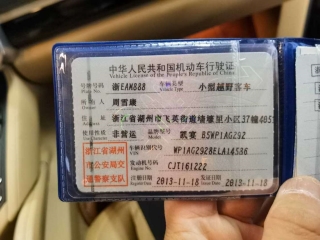 中华人民共和国机动车行驶证
Vehicle License of the People's Republic of China
号牌号码 浙EAM888 车辆类型 小型越野客车
Plate No. Vehicle Type
所有人 周雪康
Owner
住址 浙江省湖州市飞英街道墙壕里小区37幢
Address
使用性质 非营运 品牌型号
Use Character Model
浙江省湖州
市公安局交
通警察支队
车辆识别代号
VIN
发动机号码 CJT161222
Engine No.
注册日期 2013-11-18 发证日期 2013-11-18
Register Date Issue Date